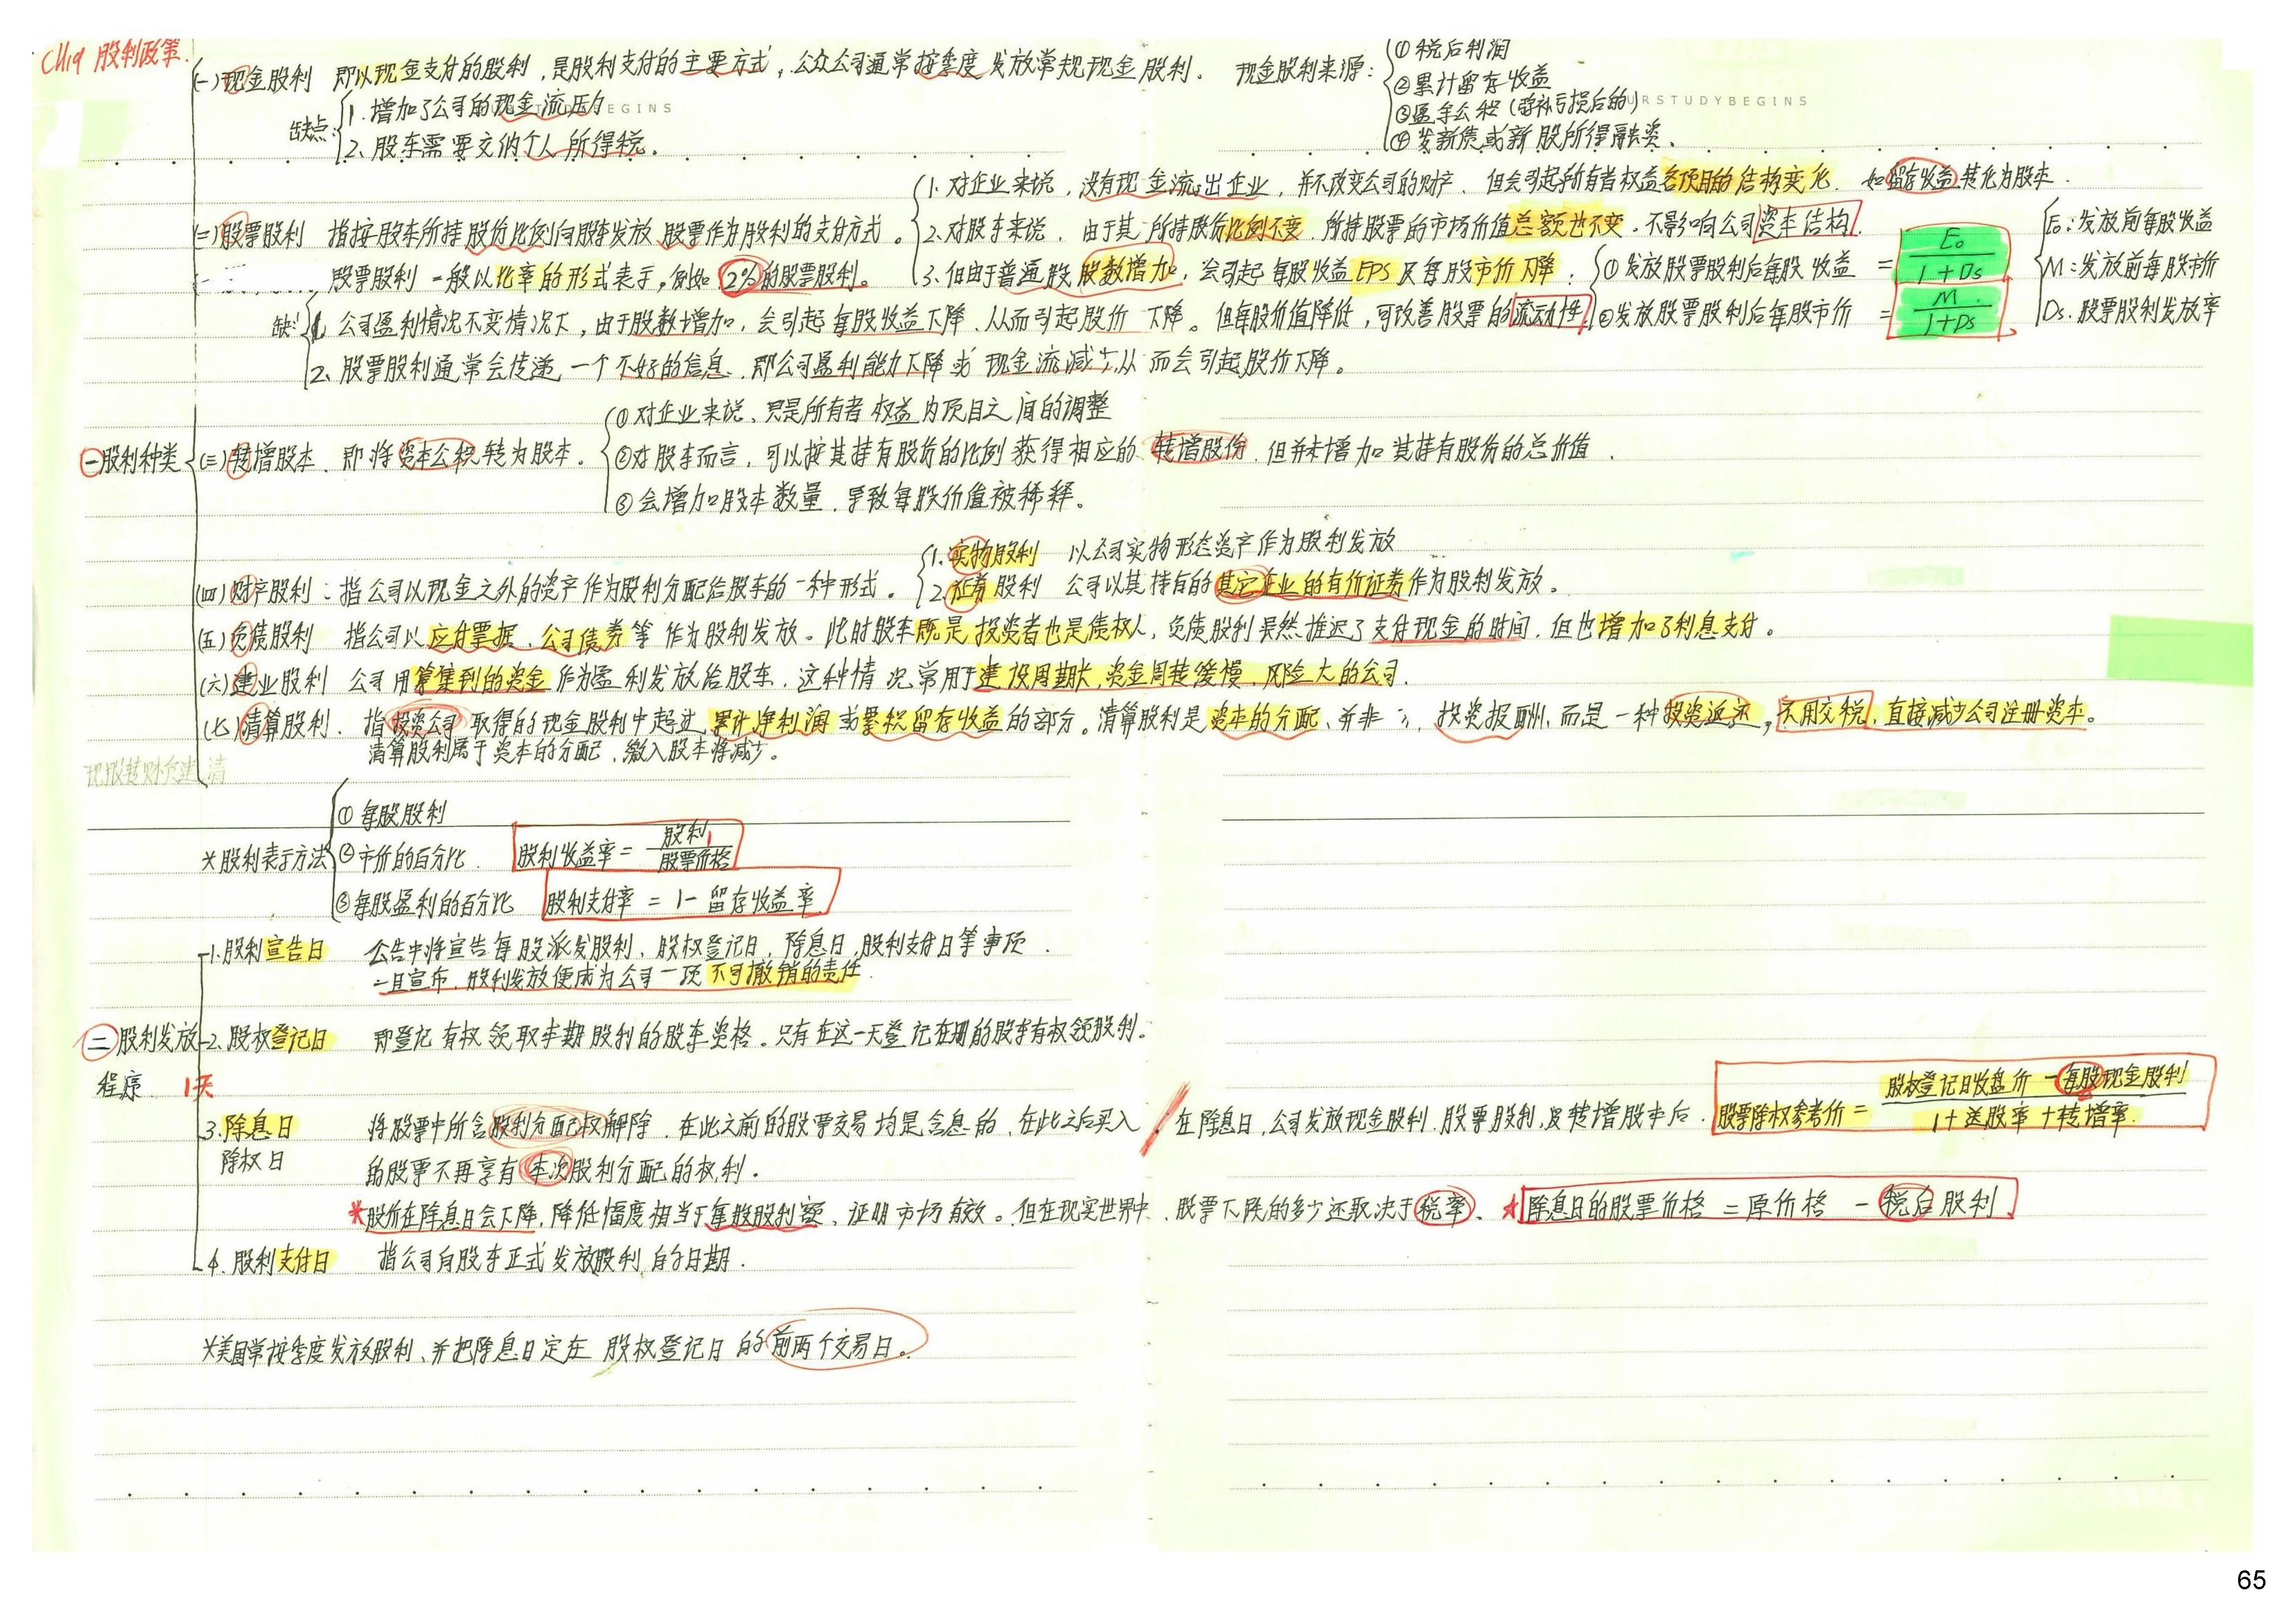 CH19 股利政策.
(一)现金股利 即以现金支付的股利,是股利支付的主要方式,公众公司通常按季度发放常规现金股利. 现金股利来源:
①税后利润
②累计留存收益
③盈余公积(弥补亏损后的)
④发新债或新股所得融资、
缺点:
1. 增加了公司的现金流压力
2、股东需要交纳个人所得税.
EGINS
URSTUDYBEGINS
(二)股票股利 指按股东所持股份比例向股东发放股票作为股利的支付方式。
1. 对企业来说,没有现金流出企业,并不改变公司的财产、但会引起所有者权益各项目的结构变化. 如留存收益转化为股本.
2. 对股东来说, 由于其所持股份比例不变.所持股票的市场价值总额也不变.不影响公司资本结构.
3. 但由于普通股股数增加,会引起每股收益EPS及每股市价下降.
股票股利一般以比率的形式表示,例如,2%的股票股利。
①发放股票股利后每股收益 = E₀ / 1+Ds
②发放股票股利后每股市价 = M. / 1+Ds
E₀:发放前每股收益
M:发放前每股市价
Ds.股票股利发放率
缺:
1、公司盈利情况不变情况下,由于股数增加,会引起每股收益下降.从而引起股价下降。但每股价值降低,可改善股票的流动性
2、股票股利通常会传递一个不好的信息、即公司盈利能力下降或现金流减少,从而会引起股价下降。
一 股利种类
(三)转增股本、即将资本公积转为股本.
①对企业来说、只是所有者权益内项目之间的调整
②对股东而言,可以按其持有股份的比例获得相应的转增股份,但并未增加其持有股份的总价值.
③会增加股本数量,导致每股价值被稀释。
(四)财产股利:指公司以现金之外的资产作为股利分配给股东的一种形式.
1.实物股利 以公司实物形态资产作为股利发放
2.证券股利 公司以其持有的其它企业的有价证券作为股利发放。
(五)负债股利 指公司以应付票据、公司债券等作为股利发放。此时股东既是投资者也是债权人,负债股利虽然推迟了支付现金的时间,但也增加了利息支付。
(六)建业股利 公司用筹集到的资金作为盈利发放给股东.这种情况常用于建设周期长,资金周转缓慢、风险大的公司.
(七)清算股利. 指投资公司取得的现金股利中超过累计净利润或累积留存收益的部分。清算股利是资本的分配、并非 投资报酬,而是一种投资返还,不用交税,直接减少公司注册资本。
清算股利属于资本的分配,缴入股本将减少。
现股转财负建清
*股利表示方法
①每股股利
②市价的百分比. 股利收益率= 股利 / 股票价格
③每股盈利的百分比 股利支付率 = 1-留存收益率
二 股利发放程序
1.股利宣告日 公告中将宣告每股派发股利、股权登记日,除息日,股利支付日等事项.
一旦宣布,股利发放便成为公司一项不可撤销的责任.
2.股权登记日 即登记有权领取本期股利的股东资格。只有在这一天登记在册的股东有权领股利.
1天
3.除息日 除权日 将股票中所含股利分配权解除.在此之前的股票交易均是含息的,在此之后买入
的股票不再享有本次股利分配的权利.
在除息日,公司发放现金股利.股票股利,及转增股本后. 股票除权参考价= 股权登记日收盘价-每股现金股利 / 1+送股率+转增率.
*股价在除息日会下降,降低幅度相当于每股股利额、证明市场有效。但在现实世界中、股票下跌的多少还取决于税率、 ★除息日的股票价格 = 原价格 - 税后股利
4.股利支付日 指公司向股东正式发放股利的日期.
*美国常按季度发放股利、并把除息日定在股权登记日的前两个交易日。
65